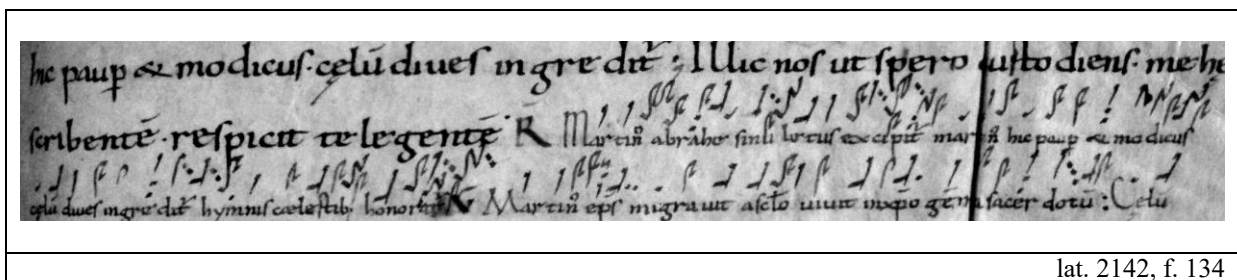 hic paup̄ & modicus· cęlū diues ingredit̄ : Illic nos ut spero custodiens· me he
scribentē· respicit te legentē R̄ Martin̄ abrahę sinu lętus excipit̄ martin̄ hic paup & modicus
cęlū diues ingredit̄ hymnis cælestib; honorat̄ R̄ Martin̄ ep̄s migrauit asc̄lo uiuit inxp̄o gēma sacerdotū : Celū
lat. 2142, f. 134